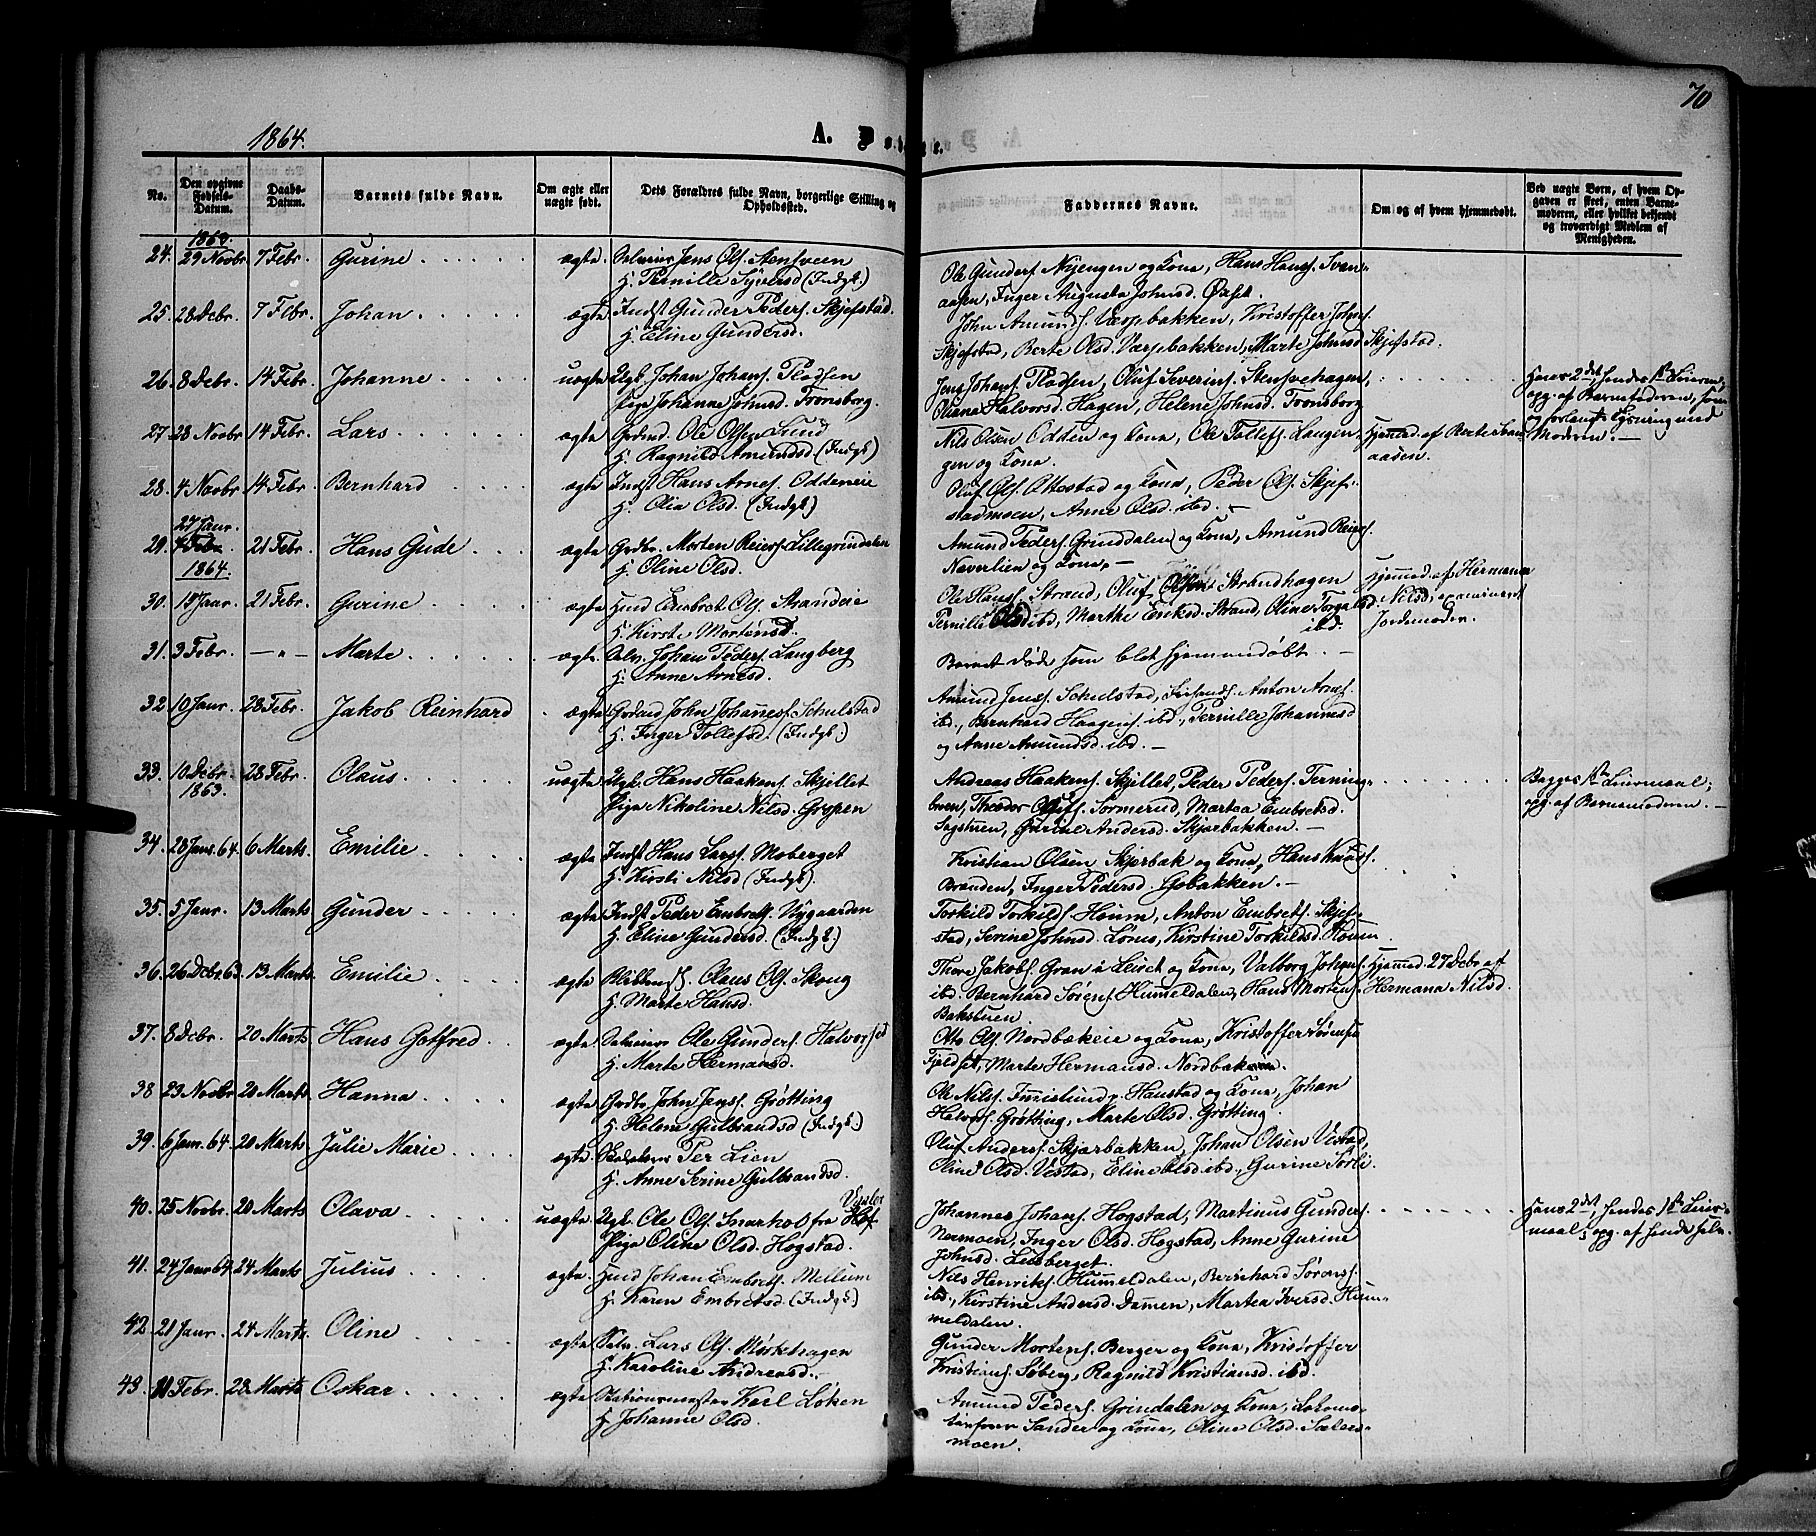 70
1864.
A. Døbte.
No.
Den opgivne Fødsels-Datum.
Daabs-Datum.
Barnets fulde Navn.
Om ægte eller uægte født.
Dets Forældres fulde Navn, borgerlige Stilling og Opholdssted.
Faddernes Navne.
Om og af hvem hjemmedøbt.
Ved uægte Børn, af hvem Opgaven er skeet, enten Barnemoderen, eller hvilket bekjendt og troværdigt Medlem af Menigheden.
1863.
24. 29 Novbr 7 Febr. Gurine ægte Jens Ols. Stensveen
H. Pernille Syversd (Indgk.)
Ole Gunders. Nyengen og Kona, Hans Hans. Svan-
aasen, Inger Augusta Johnsd. Øxset.
25. 28 Debr. 7 Febr. Johan ægte Indst Gunder Peders. Skjefstad
H. Eline Gundersd.
John Amunds. Værpebakken, Kristoffer Johns.
Skjefstad, Berte Olsd. Værpebakken, Marte Johnsd Skjefstad.
26. 8 Debr. 14 Febr. Johanne uægte Ugk. Johan Johans. Pladsen
Pige Johanne Johnsd. Tronsborg.
Jens Johans. Pladsen, Oluf Severins. Stensvehagen,
Oliana Halvorsd. Hagen, Helene Johnsd. Tronsborg
Hans 2det, hendes 1ste Leierm.,
opg. af Barnefaderen, som
og forlangt Lysning med
Moderen. —
27. 28 Novbr 14 Febr. Lars ægte Grdmd. Ole Olsen Lund
H. Ragnild Amundsd. (Indgk)
Nils Olsen Odden og Kona, Ole Tollefs. Lan-
gen og Kona.
Hjemmed. af Berte Svan-
aasen.
28. 4 Novbr 14 Febr. Bernhard ægte Indst Hans Arnes. Oddeneie
H. Olia Olsd. (Indgk)
Oluf Ols. Ottestad og Kona, Peder Ols. Skjef-
stadmoen, Anne Olsd. ibd. —
27 Janr.
29. 21 Febr. Hans Gude ægte Grdbr. Morten Reiers. Lillegrindalen
H. Oline Olsd.
Amund Peders. Grunddalen og Kona, Amund Reiers.
Naverlien og Kona. —
1864.
30. 15 Janr. 21 Febr. Gurine ægte Husmd Embret Ols. Strandeie
H. Kirsti Mortensd.
Ole Hans. Strand, Oluf Olsen Strandhagen
Pernille Olsd ibd, Marthe Eriksd. Strand, Oline Torgalsd.
ibd.
Hjemmed af Hermana
Nilsd, examineret
Jordemoder.
31. 3 Febr. — " — Marte ægte Selv. Johan Peders. Langberg
H. Anne Arnesd.
Barnet døde som blot hjemmedøbt. —
32 10 Janr. 28 Febr. Jakob Reinhard ægte John Johannes. Schulstad
H. Inger Tollefsd. (Indgk.)
Amund Jens. Schulstad, Anton Arnes.
ibd., Bernhard Haagens. ibd., Pernille Johannesd
og Anne Amundsd. ibd. —
33. 10 Debr. 1863. 28 Febr. Olaus uægte Ugk. Hans Haakens. Skjillet
Pige Nikoline Nilsd. Grypen
Andreas Haakens. Skjillet, Peder Peders. Terning-
moen, Theodor Olufs. Sormerud, Martea Embretsd.
Sagstuen, Gurine Andersd. Skjærbakken. —
Begges 1ste Leiermaal;
opg. af Barnemoderen. —
34. 28 Janr. 64. 6 Marts. Emilie ægte Indst Hans Lars. Moberget
H. Kirsti Nilsd (Indgk).
Kristian Olsen Skjærbæk og Kona, Hans Knuds.
Brænden, Inger Pedersd. Gobakken. —
35. 5 Janr. 13 Marts Gunder ægte Indst Peder Embrets. Nygaarden
H. Eline Gundersd. (Indgk.)
Torkild Torkilds. Houm, Anton Embrets. Skjef-
stad, Serine Johnsd. Lønes, Kirstine Torkildsd. Houm
36. 26 Debr 63. 13 Marts. Emilie ægte Olaus Ols. Skoug
H. Marte Hansd.
Thore Jakobs. Gran i Leiret og Kona, Valborg Johans.
ibd. Bernhard Sørens. Hummeldalen, Hans Mortens.
Bakstuen.
Hjemmed. 27 Debr af
Hermana Nilsd.
37. 8 Debr. 20 Marts Hans Gotfred ægte Ole Gunders. Halvorset
H. Marte Hermansd.
Otto Ols. Nordbækeie og Kona, Kristoffer Sørens.
Fjeldset, Marte Hermansd. Nordbækeie.
38 23 Novbr 20 Marts Hanna ægte Grdbr John Jens. Grøtting
H. Helene Gulbrandsd (Indgk.)
Ole Nils. Haustad og Kona, Johan
Halvors. Grøtting, Marte Olsd. Grøtting.
39. 6 Janr. 64. 20 Marts Julie Marie ægte Per Lien
H. Anne Serine Gulbrandsd.
Oluf Anders. Skjærbakken, Johan Olsen Vestad,
Oline Olsd. Vestad, Eline Olsd ibd., Gurine Sørli.
40. 25 Novbr. 20 Marts Olava uægte Ugk. Ole Ols. Snarhol fra Hof
Pige Oline Olsd. Hogstad.
Johannes Johans. Hogstad, Martinus Gunders.
Nermoen, Inger Olsd. Hogstad, Anne Gurine
Johnsd. Lusberget.
Hans 2det, hendes 1ste Leier-
maal; opg. af hende selv.
41. 24 Janr 64 24 Marts Julius ægte Husmd Johan Embrets. Mellum
H. Karen Embretsd. (Indgk.)
Nils Henriks. Hummeldalen, Bernhard Sørens.
ibd., Kirstine Andersd. Dammen, Martea Iversd. Hum-
meldalen.
42 21 Janr. 24 Marts. Oline ægte Selv. Lars Ols. Mørkhagen
H. Karoline Andreasd.
Gunder Mortens. Berger og Kona, Kristoffer
Kristians. Søberg, Ragnild Kristiansd. ibd.
43. 11 Febr. 28 Marts Oskar ægte Stationsmester Karl Løken
H. Johanne Olsd.
Amund Peders. Grindalen og Kona, Lokomo-
tivfører Sander og Kona, Oline Olsd. Sæters-
moen.